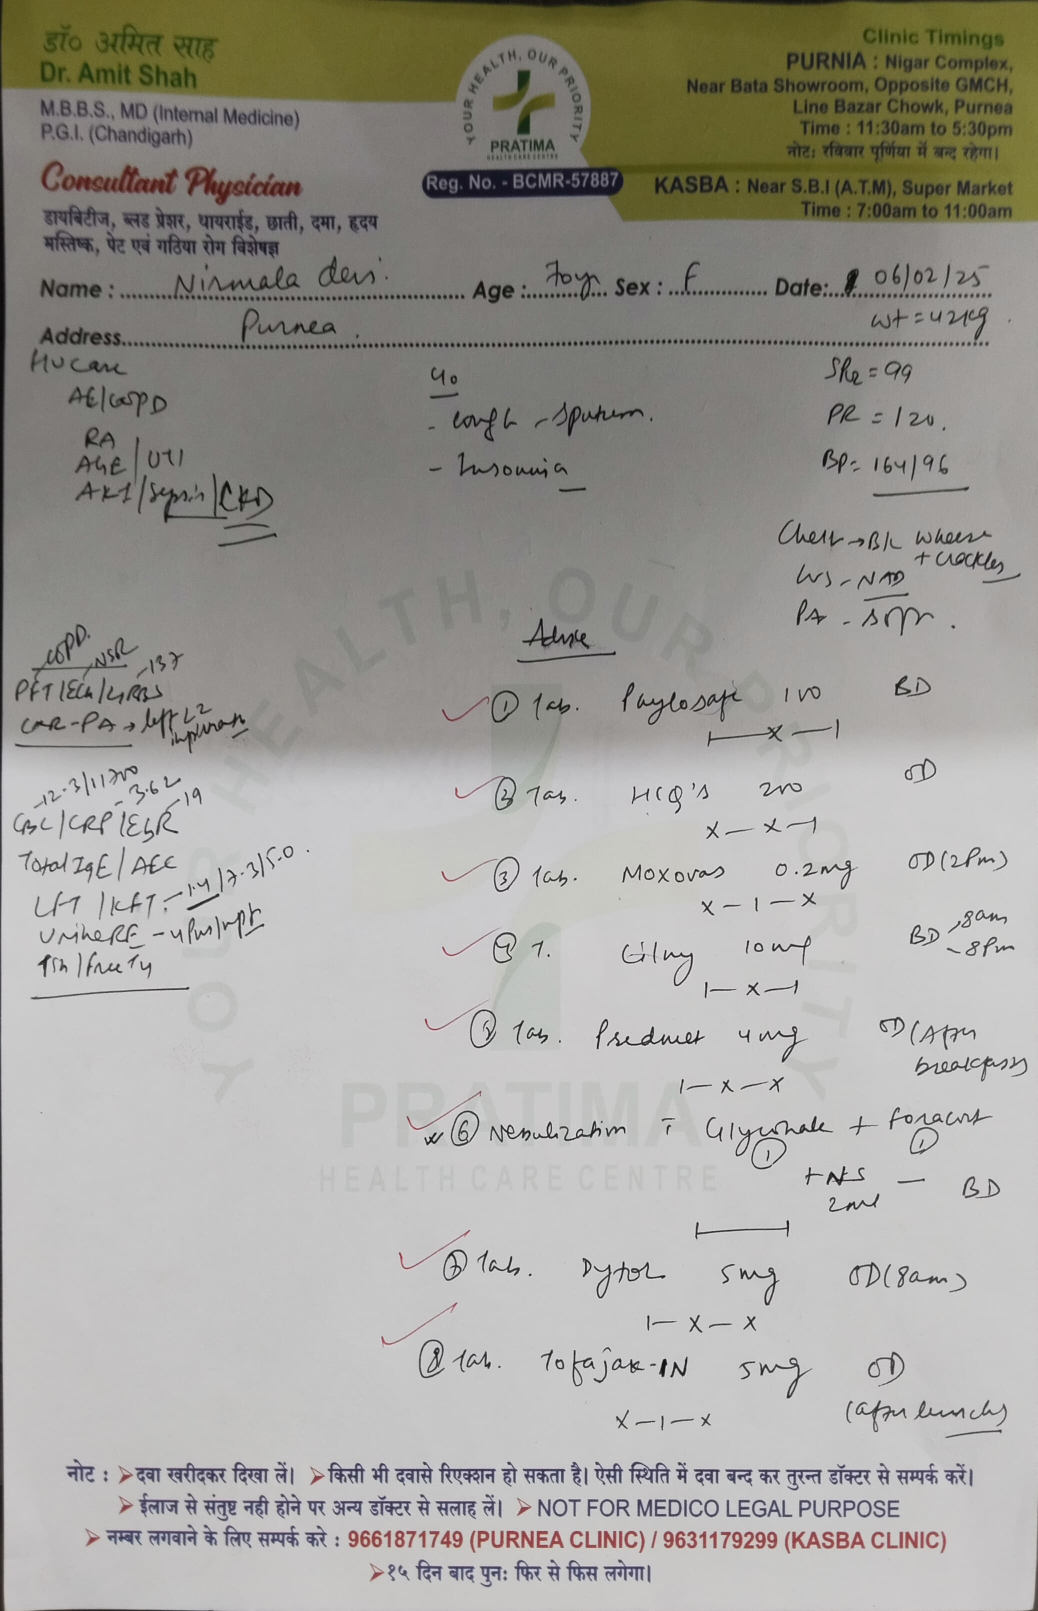 डॉ० अमित साह
Dr. Amit Shah
M.B.B.S., MD (Internal Medicine)
P.G.I. (Chandigarh)
Consultant Physician
डायबिटीज, ब्लड प्रेशर, थायराईड, छाती, दमा, हृदय
मस्तिष्क, पेट एवं गठिया रोग विशेषज्ञ
YOUR HEALTH, OUR PRIORITY
PRATIMA
HEALTH CARE CENTRE
Reg. No. - BCMR-57887
Clinic Timings
PURNIA : Nigar Complex,
Near Bata Showroom, Opposite GMCH,
Line Bazar Chowk, Purnea
Time : 11:30am to 5:30pm
नोट: रविवार पूर्णिया में बन्द रहेगा।
KASBA : Near S.B.I (A.T.M), Super Market
Time : 7:00am to 11:00am
Name : Nirmala devi Age : 70yr Sex : F Date: 06/02/25
Address Purnea
wt = 42kg
AE/COPD
RA
AGE/UTI
AKI/Sepsis/CKD
c/o
- cough - sputum.
- Insomnia
PR = 120
BP = 164/96
Chest → B/L wheeze
+ crackles
- NAD
PA - soft
COPD NSR 137
PFT/ECG/GRBS
→ left
12.3/11700 - 3.62 - 19
CBC/CRP/ESR
Total IgE/AEC
LFT/KFT - 1.4/7.3/5.0
Urine RE
TSH/Free T4
Advice
① Tab. BD
1 - x - 1
② Tab. HCQ'S 200 OD
x - x - 1
③ Tab. Moxovas 0.2mg OD (2Pm)
x - 1 - x
④ T. Cilny 10mg BD 8am
- 8pm
1 - x - 1
⑤ Tab. Predmet 4mg OD (After
breakfast)
1 - x - x
⑥ Nebulization c̄ Glycohale + Foracort
① ①
+ NS - BD
2ml
⑦ Tab. Dytor 5mg OD (8am)
1 - x - x
⑧ Tab. Tofajak-IN 5mg OD
(after lunch)
x - 1 - x
YOUR HEALTH, OUR PRIORITY
PRATIMA
HEALTH CARE CENTRE
नोट : ➤दवा खरीदकर दिखा लें। ➤किसी भी दवासे रिएक्शन हो सकता है। ऐसी स्थिति में दवा बन्द कर तुरन्त डॉक्टर से सम्पर्क करें।
➤ईलाज से संतुष्ट नही होने पर अन्य डॉक्टर से सलाह लें। ➤NOT FOR MEDICO LEGAL PURPOSE
➤नम्बर लगवाने के लिए सम्पर्क करे : 9661871749 (PURNEA CLINIC) / 9631179299 (KASBA CLINIC)
➤१५ दिन बाद पुनः फिर से फिस लगेगा।